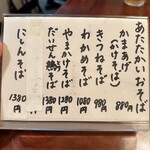 あたたかいおそば
かまあげ
(おけそば) 880円
きつねそば 980円
わかめそば 1080円
やまかけそば 1280円
だいせん鶏そば 1380円
にしんそば 1380円